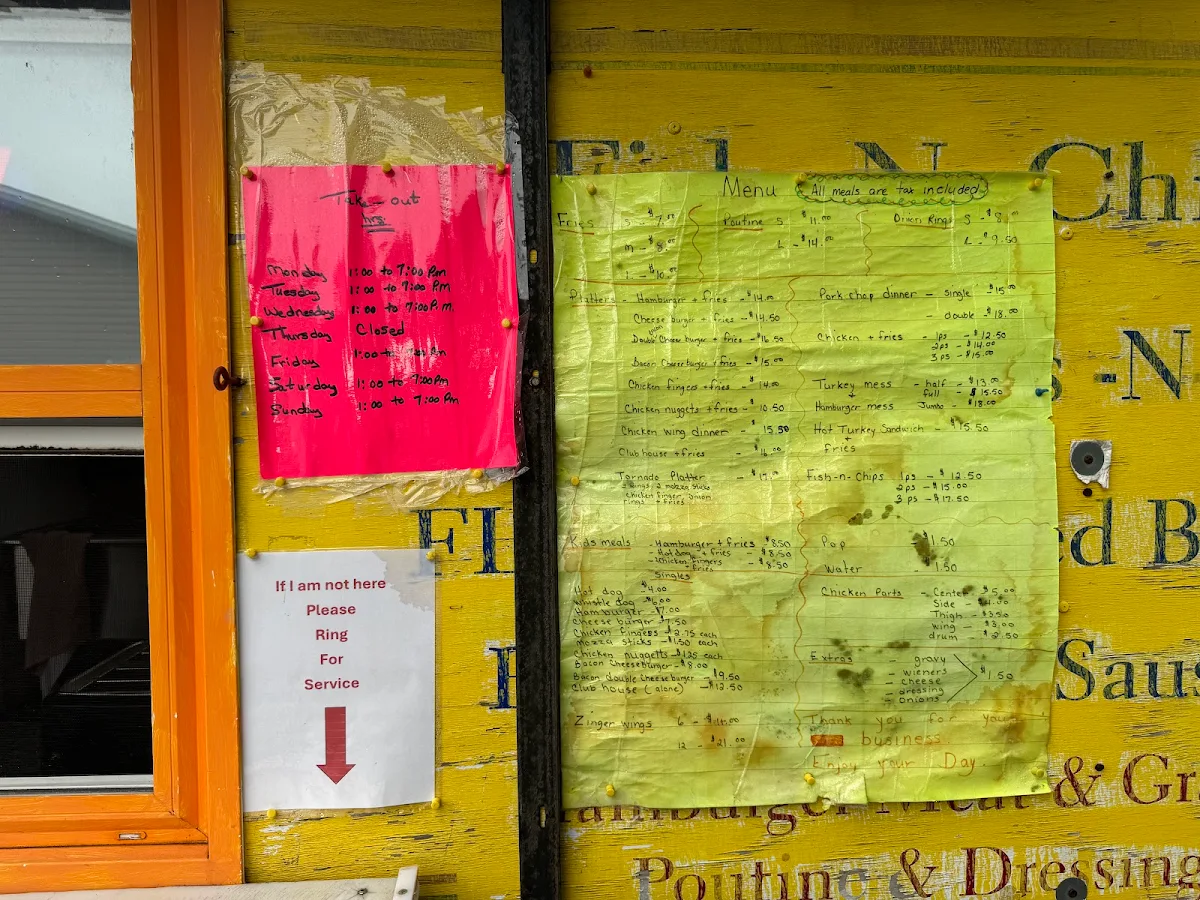 Take-out
hrs
Monday 1:00 to 7:00 Pm
Tuesday 1:00 to 7:00 Pm
Wednesday 1:00 to 7:00 P.m.
Thursday Closed
Friday 1:00 to
Saturday 1:00 to 7:00Pm
Sunday 1:00 to 7:00 Pm
If I am not here
Please
Ring
For
Service
Menu All meals are tax included
Fries S - $7.00
M - $8.00
L - $10.00
Poutine S $11.00
L - $14.00
Onion Rings S - $8.00
L - $9.50
Platters - Hamburger + fries - $14.00
Cheese burger + fries - $14.50
Double Cheese burger + fries - $16.50
Bacon Cheeseburger + fries - $15.00
Chicken fingers + fries - $14.00
Chicken nuggets + fries - 10.50
Chicken wing dinner - $15.50
Club house + fries - $16.00
Tornado Platter - $17.00
wings, 2 mozza sticks
chicken finger, onion
rings + fries
Pork chop dinner - single $15.00
- double - $18.00
Chicken + fries - 1ps - $12.50
2ps - $14.00
3ps - $15.00
Turkey mess - half - $13.00
+ full - $15.50
Hamburger mess Jumbo - $18.00
Hot Turkey Sandwich - $15.50
+
fries
Fish-n-Chips 1ps - $12.50
2ps - $15.00
3ps - $17.50
Kids meals - Hamburger + fries - $8.50
- Hotdog + fries - $8.50
- Chicken fingers - $8.50
+ fries
Singles
Hot dog $4.00
Whistle dog - $6.00
Hamburger - $7.00
Cheese burger - $7.50
Chicken Fingers - $2.75 each
mozza sticks - $1.50 each
Chicken nuggetts - $1.25 each
Bacon Cheeseburger - $8.00
Bacon double Cheeseburger - $9.50
Club house (alone) - $12.50
Zinger wings 6 - $11.00
12 - $21.00
Pop $1.50
Water 1.50
Chicken Parts - Center $5.00
Side - $4.00
Thigh - $3.50
wing - $3.00
drum - $2.50
Extras - gravy
- wieners
- cheese $1.50
- dressing
- onions
Thank you for your
business.
Enjoy your Day.
N Chi
-N
FI
ed B
Sau
amburger Meat & Gr
Poutine & Dressing